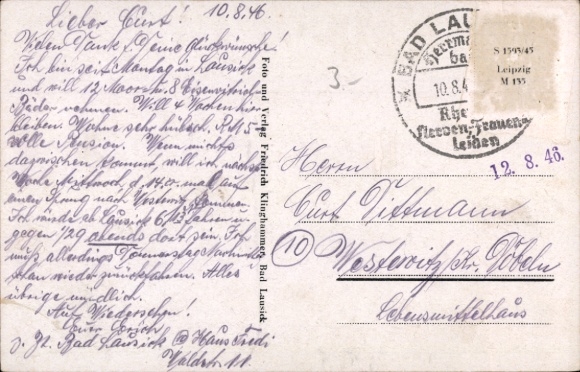 Lieber Curt! 10.8.46
Vielen Dank f. Deine Glückwünsche!
Ich bin seit Montag in Lausick
und will 12 Moor u. 8 Eisenvitriol
Bäder nehmen. Will 4 Wochen hier
bleiben. Wohne sehr hübsch. RM 5-
volle Pension. Wenn nichts
dazwischen kommt will ich nächste
Woche Mittwoch, d. 14.8. mal auf
einen Sprung nach Westewitz kommen.
Ich würde ab Lausick 6/ fahren u.
gegen 1/2 9 abends dort sein. Ich
muß allerdings Donnerstag Nachmittag
wieder zurückfahren. Alles
übrige mündlich.
Auf Wiedersehen!
Euer Erich
z. Zt. Bad Lausick @ Haus Friedl
Waldstr. 11
Foto und Verlag Friedrich Klinghammer, Bad Lausick
3-
BAD LAU
Herrma
bad
10.8.4
Rheu
Nerven-Frauen-
leiden
S 1595/45
Leipzig
M 135
12. 8. 46.
Herrn
Curt Dittmann
(10) Westewitz Kr. Döbeln
Lebensmittelhaus